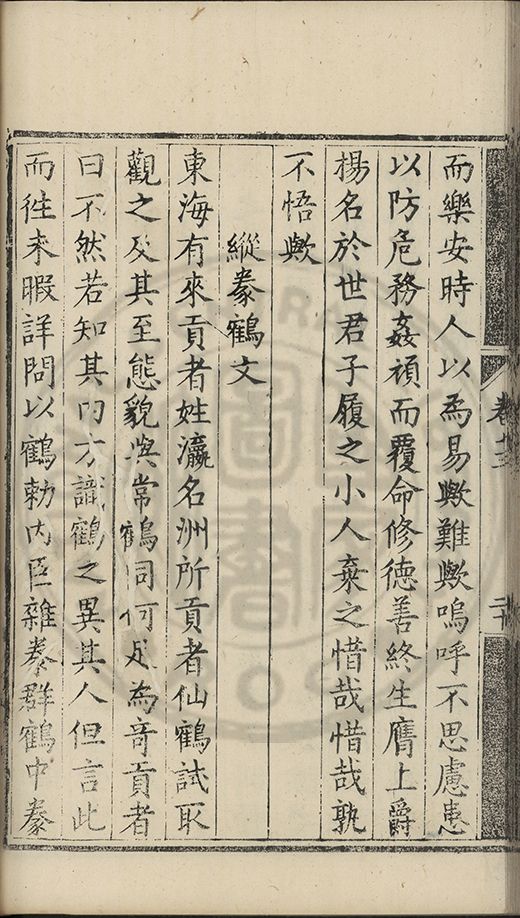 而樂安時人以為易歟難歟嗚呼不思慮患
以防危務姦禎而覆命修德善終生膺上爵
楊名於世君子履之小人棄之惜哉惜哉孰
不悟歟
縱豢鶴文
東海有來貢者姓瀛名洲所貢者仙鶴試取
觀之及其至態貌與常鶴同何足為奇貢者
曰不然若知其內方識鶴之異其人但言此
而徃未暇詳問以鶴勅內臣雜豢群鶴中豢
卷十三
二十